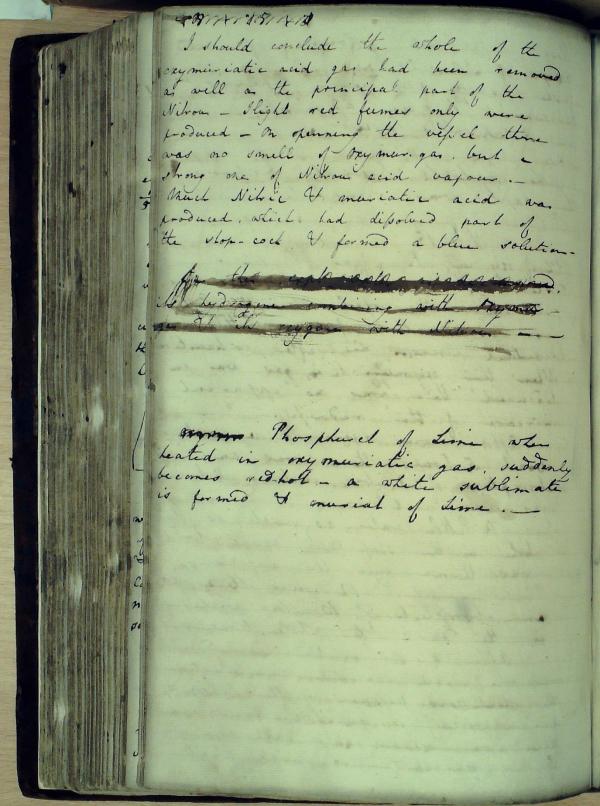 I should conclude the whole of the
oxymuriatic acid gas had been removed
as well as the principal part of the
Nitrous - slight red fumes only were
produced - On openning the vessel there
was no smell of oxymur. gas. but a
strong one of Nitrous acid vapour. -
Much Nitric & muriatic acid was
produced. which had dissolved part of
the stop-cock & formed a blue solution -
the
hydrogene combining with
oxygene with Nitrous -
Phosphuret of Lime when
heated in oxymuriatic gas. suddenly
becomes red hot - a white sublimate
is formed & muriat of Lime. -